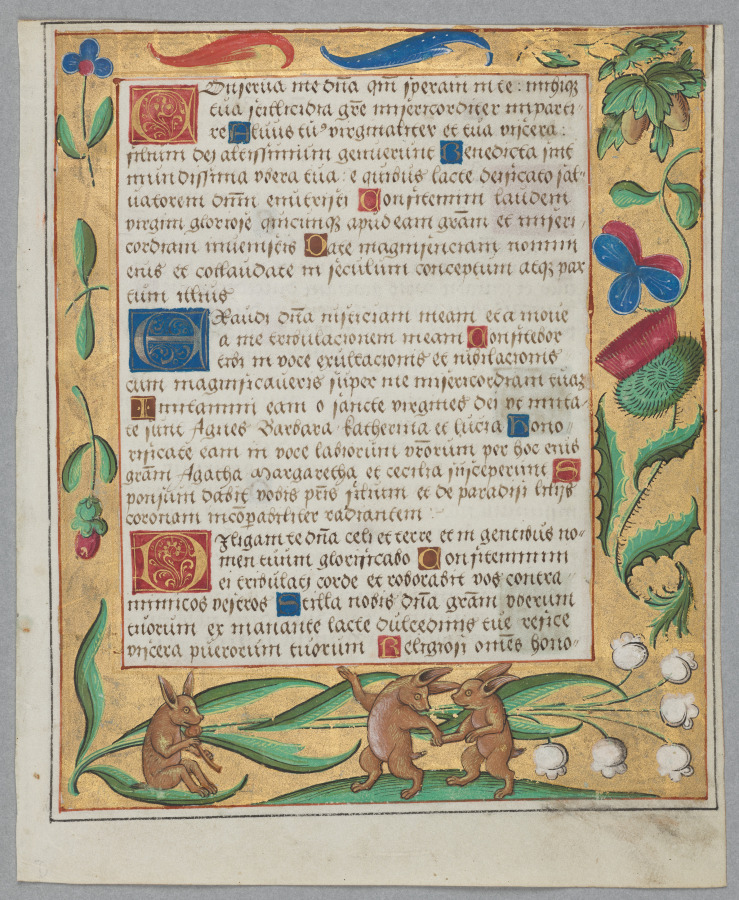 Conserua me dña qm̃ speraui in te : mihiq3
tua stillicidia grẽ misericorditer imparti-
re Aluus tu9 virginaliter et tua viscera :
filium dei altissimum genuerunt Benedicta sint
mundissima vbera tua : e quibus lacte deificato sal-
uatorem dñm enutristi Confitemini laudem
virgini gloriose quicunq3 apud eam grãm et miseri
cordiam inuenistis Date magnificenciam nomini
eius et collaudate in seculum conceptum atq3 par
tum illius
Exaudi dña iusticiam meam et a moue
a me tribulacionem meam Confitebor
tibi in voce exultacionis et iubilacionis
cum magnificaueris super me misericordiam tuã
Imitamini eam o sancte virgines dei vt imita-
te sunt Agnes Barbara Katherina et lucia Hono
rificate eam in voce labiorum vr̃orum per hoc enis
grãm Agatha Margaretha et cecilia susceperunt S
ponsum dabit vobis pr̃is filium et de paradisi lilijs
coronam incõparabiliter radiantem :
Diligam te dña celi et terre et in gentibus no-
men tuum glorificabo Confitemini
ei tribulati corde et roborabit vos contra
inimicos vestros Stilla nobis dña grãm vberum
tuorum ex manante lacte dulcedinis tue refice
viscera puerorum tuorum Religiosi omẽs hono-